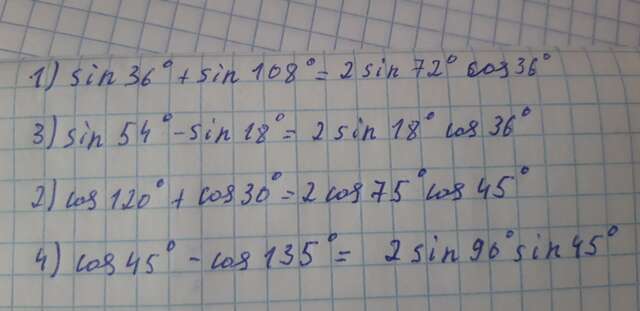 1) sin 36° + sin 108° = 2 sin 72° cos 36°
3) sin 54° - sin 18° = 2 sin 18° cos 36°
2) cos 120° + cos 30° = 2 cos 75° cos 45°
4) cos 45° - cos 135° = 2 sin 90° sin 45°